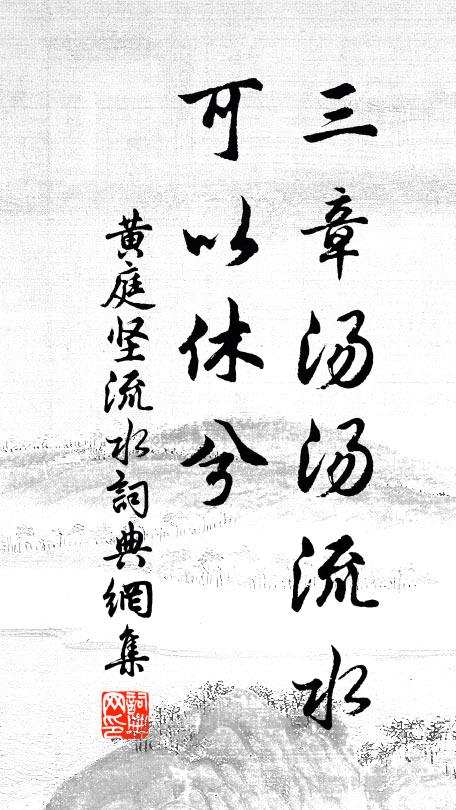 三章汤汤流水
可以休兮
黄庭坚流水詞典網集